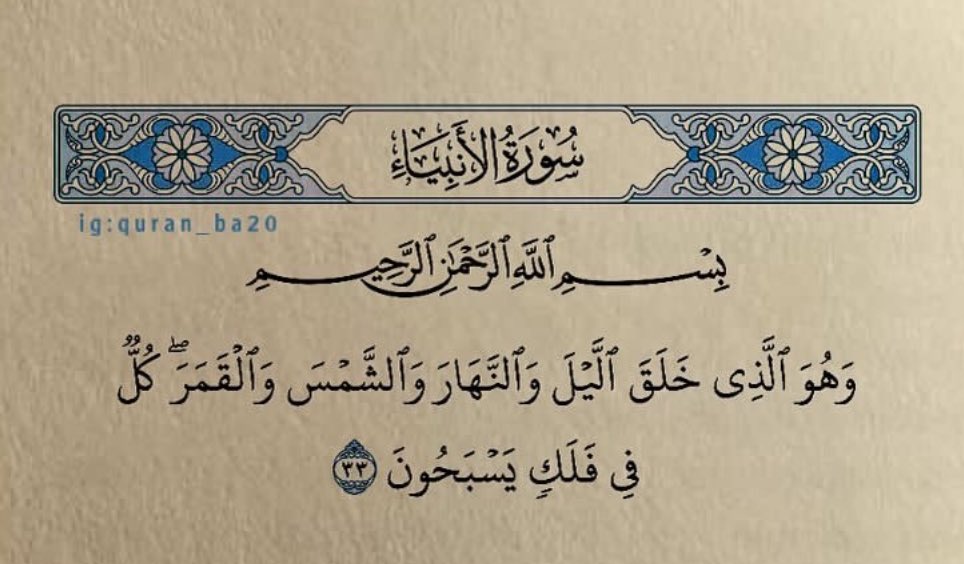 سُورَةُ الأَنبِيَاءِ
ig:quran_ba20
بِسْمِ ٱللَّهِ ٱلرَّحْمَٰنِ ٱلرَّحِيمِ
وَهُوَ ٱلَّذِى خَلَقَ ٱلَّيْلَ وَٱلنَّهَارَ وَٱلشَّمْسَ وَٱلْقَمَرَ ۖ كُلٌّ
فِى فَلَكٍ يَسْبَحُونَ ٣٣